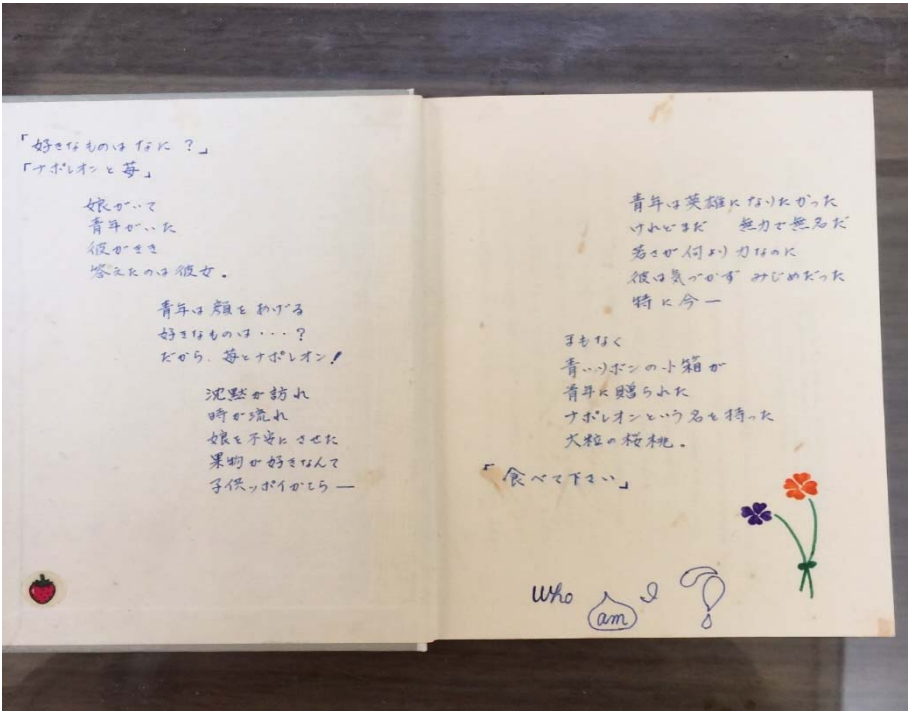 「好きなものはなに？」
「ナポレオンと苺」
娘がいて
青年がいた
彼がきき
答えたのは彼女。
青年は顔をあげる
好きなものは・・・？
だから、苺とナポレオン！
沈黙が訪れ
時が流れ
娘を不安にさせた
果物が好きなんて
子供ッポイかしら―
青年は英雄になりたかった
けれどまだ　無力で無名だ
若さが何より力なのに
彼は気づかず みじめだった
特に今―
まもなく
青いリボンの小箱が
青年に贈られた
ナポレオンという名を持った
大粒の桜桃。
「食べて下さい」
Who am I ?